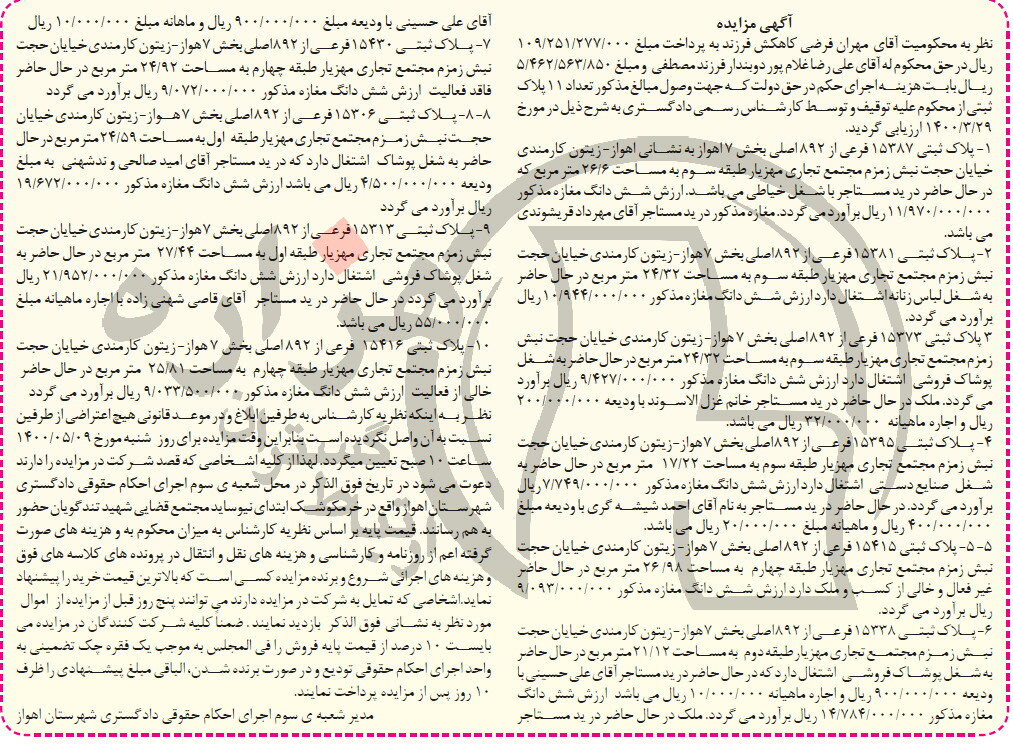 آگهی مزایده
نظر به محکومیت آقای مهران فرضی کاهکش فرزند به پرداخت مبلغ ۱۰۹/۲۵۱/۲۷۷/۰۰۰
ریال در حق محکوم له آقای علی رضا غلام پور دوبندار فرزند مصطفی و مبلغ ۵/۴۶۲/۵۶۳/۸۵۰
ریال بابت هزینه اجرای حکم در حق دولت که جهت وصول مبالغ مذکور تعداد ۱۱ پلاک
ثبتی از محکوم علیه توقیف و توسط کارشناس رسمی دادگستری به شرح ذیل در مورخ
۱۴۰۰/۳/۲۹ ارزیابی گردید.
۱- پلاک ثبتی ۱۵۳۸۷ فرعی از ۸۹۲ اصلی بخش ۷ اهواز به نشانی اهواز-زیتون کارمندی
خیابان حجت نبش زمزم مجتمع تجاری مهزیار طبقه سوم به مساحت ۲۶/۶ متر مربع که
در حال حاضر در ید مستاجر با شغل خیاطی می باشد. ارزش شش دانگ مغازه مذکور
۱۱/۹۷۰/۰۰۰/۰۰۰ ریال برآورد می گردد. مغازه مذکور در ید مستاجر آقای مهرداد قریشوندی
می باشد.
۲- پلاک ثبتی ۱۵۳۸۱ فرعی از ۸۹۲اصلی بخش ۷هواز-زیتون کارمندی خیابان حجت
نبش زمزم مجتمع تجاری مهزیار طبقه سوم به مساحت ۲۴/۳۲ متر مربع در حال حاضر
به شغل لباس زنانه اشتغال دارد ارزش شش دانگ مغازه مذکور ۱۰/۹۴۴/۰۰۰/۰۰۰ ریال
برآورد می گردد.
۳ پلاک ثبتی ۱۵۳۷۳ فرعی از ۸۹۲اصلی بخش ۷هواز-زیتون کارمندی خیابان حجت نبش
زمزم مجتمع تجاری مهزیار طبقه سوم به مساحت ۲۴/۳۲ متر مربع در حال حاضر به شغل
پوشاک فروشی اشتغال دارد ارزش شش دانگ مغازه مذکور ۹/۴۲۷/۰۰۰/۰۰۰ ریال برآورد
می گردد. ملک در حال حاضر در ید مستاجر خانم غزل الاسوند با ودیعه ۲۰۰/۰۰۰/۰۰۰
ریال و اجاره ماهیانه ۳۲/۰۰۰/۰۰۰ ریال می باشد.
۴- پلاک ثبتی ۱۵۳۹۵ فرعی از ۸۹۲اصلی بخش ۷هواز-زیتون کارمندی خیابان حجت
نبش زمزم مجتمع تجاری مهزیار طبقه سوم به مساحت ۱۷/۲۲ متر مربع در حال حاضر به
شغل صنایع دستی اشتغال دارد ارزش شش دانگ مغازه مذکور ۷/۷۴۹/۰۰۰/۰۰۰ ریال
برآورد می گردد. در حال حاضر در ید مستاجر به نام آقای احمد شیشه گری با ودیعه مبلغ
۴۰۰/۰۰۰/۰۰۰ ریال و ماهیانه مبلغ ۲۰/۰۰۰/۰۰۰ ریال می باشد.
۵-۵- پلاک ثبتی ۱۵۴۱۵ فرعی از ۸۹۲اصلی بخش ۷هواز-زیتون کارمندی خیابان حجت
نبش زمزم مجتمع تجاری مهزیار طبقه چهارم به مساحت ۲۶/۹۸ متر مربع در حال حاضر
غیر فعال و خالی از کسب و ملک دارد ارزش شش دانگ مغازه مذکور ۹/۰۹۳/۰۰۰/۰۰۰
ریال برآورد می گردد.
۶- پلاک ثبتی ۱۵۳۳۸ فرعی از ۸۹۲اصلی بخش ۷هواز-زیتون کارمندی خیابان حجت
نبش زمزم مجتمع تجاری مهزیار طبقه دوم به مساحت ۲۱/۱۲متر مربع در حال حاضر
به شغل پوشاک فروشی اشتغال دارد که در حال حاضر در ید مستاجر آقای علی حسینی با
ودیعه ۹۰۰/۰۰۰/۰۰۰ ریال و اجاره ماهیانه ۱۰/۰۰۰/۰۰۰ ریال می باشد ارزش شش دانگ
مغازه مذکور ۱۴/۷۸۴/۰۰۰/۰۰۰ ریال برآورد می گردد. ملک در حال حاضر در ید مستاجر
آقای علی حسینی با ودیعه مبلغ ۹۰۰/۰۰۰/۰۰۰ ریال و ماهانه مبلغ ۱۰/۰۰۰/۰۰۰ ریال
۷- پلاک ثبتی ۱۵۴۳۰ فرعی از ۸۹۲اصلی بخش ۷هواز-زیتون کارمندی خیابان حجت
نبش زمزم مجتمع تجاری مهزیار طبقه چهارم به مساحت ۲۴/۹۲ متر مربع در حال حاضر
فاقد فعالیت ارزش شش دانگ مغازه مذکور ۹/۰۷۲/۰۰۰/۰۰۰ ریال برآورد می گردد
۸-۸- پلاک ثبتی ۱۵۳۰۶ فرعی از ۸۹۲اصلی بخش ۷هواز-زیتون کارمندی خیابان
حجت نبش زمزم مجتمع تجاری مهزیار طبقه اول به مساحت ۲۴/۵۹متر مربع در حال
حاضر به شغل پوشاک اشتغال دارد که در ید مستاجر آقای امید صالحی و ندشهنی به مبلغ
ودیعه ۴/۵۰۰/۰۰۰/۰۰۰ ریال می باشد ارزش شش دانگ مغازه مذکور ۱۹/۶۷۲/۰۰۰/۰۰۰
ریال برآورد می گردد
۹- پلاک ثبتی ۱۵۳۱۳فرعی از ۸۹۲اصلی بخش ۷هواز-زیتون کارمندی خیابان حجت
نبش زمزم مجتمع تجاری مهزیار طبقه اول به مساحت ۲۷/۴۴ متر مربع در حال حاضر به
شغل پوشاک فروشی اشتغال دارد ارزش شش دانگ مغازه مذکور ۲۱/۹۵۲/۰۰۰/۰۰۰ ریال
برآورد می گردد در حال حاضر در ید مستاجر آقای قاصی شهنی زاده با اجاره ماهیانه مبلغ
۵۵/۰۰۰/۰۰۰ ریال می باشد.
۱۰- پلاک ثبتی ۱۵۴۱۶ فرعی از ۸۹۲اصلی بخش ۷هواز-زیتون کارمندی خیابان حجت
نبش زمزم مجتمع تجاری مهزیار طبقه چهارم به مساحت ۲۵/۸۱ متر مربع در حال حاضر
خالی از فعالیت ارزش شش دانگ مغازه مذکور ۹/۰۳۳/۵۰۰/۰۰۰ ریال برآورد می گردد
نظر به اینکه نظریه کارشناس به طرفین ابلاغ و در موعد قانونی هیچ اعتراضی از طرفین
نسبت به آن واصل نگردیده است بنابراین وقت مزایده برای روز شنبه مورخ ۱۴۰۰/۰۵/۰۹
ساعت ۱۰ صبح تعیین میگردد. لهذا از کلیه اشخاصی که قصد شرکت در مزایده را دارند
دعوت می شود در تاریخ فوق الذکر در محل شعبه ی سوم اجرای احکام حقوقی دادگستری
شهرستان اهواز واقع در خرمکوشک ابتدای نیوساید مجتمع قضایی شهید تندگویان حضور
به هم رسانند. قیمت پایه بر اساس نظریه کارشناس به میزان محکوم به و هزینه های صورت
گرفته اعم از روزنامه و کارشناسی و هزینه های نقل و انتقال در پرونده های کلاسه های فوق
و هزینه های اجرائی شروع و برنده مزایده کسی است که بالاترین قیمت خرید را پیشنهاد
نماید.اشخاصی که تمایل به شرکت در مزایده دارند می توانند پنج روز قبل از مزایده از اموال
مورد نظر به نشانی فوق الذکر بازدید نمایند . ضمناً کلیه شرکت کنندگان در مزایده می
بایست ۱۰ درصد از قیمت پایه فروش را فی المجلس به موجب یک فقره چک تضمینی به
واحد اجرای احکام حقوقی تودیع و در صورت برنده شدن، الباقی مبلغ پیشنهادی را ظرف
۱۰ روز پس از مزایده پرداخت نمایند.
مدیر شعبه ی سوم اجرای احکام حقوقی دادگستری شهرستان اهواز